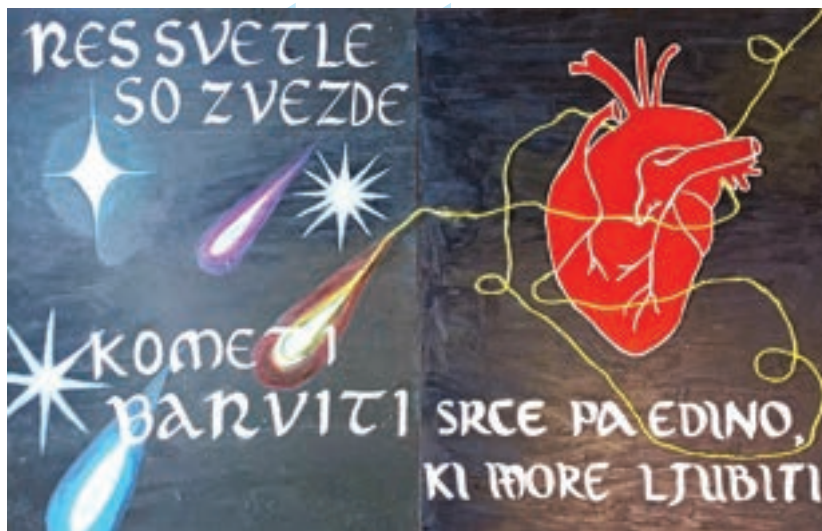 RES SVETLE
SO ZVEZDE
KOMETI
BARVITI
SRCE PA EDINO,
KI MORE LJUBITI